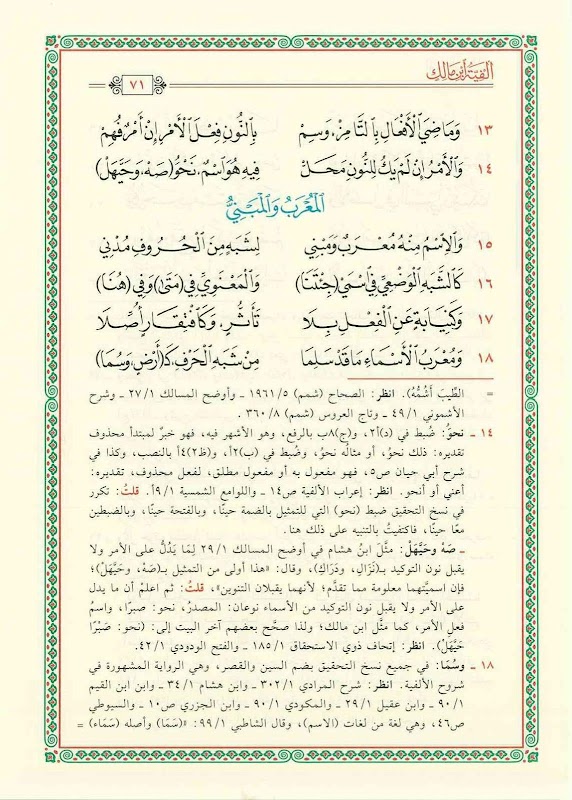 ألفية ابن مالك
٧١
١٣ وَمَاضِيَ الْأَفْعَالِ بِالتَّا مِزْ، وَسِمْ بِالنُّونِ فِعْلَ الْأَمْرِ إِنْ أَمْرٌ فُهِمْ
١٤ وَالْأَمْرُ إِنْ لَمْ يَكُ لِلنُّونِ مَحَلْ فِيهِ هُوَ اسْمٌ، نَحْوُ (صَهْ، وَحَيَّهَلْ)
الْمُعْرَبُ وَالْمَبْنِيُّ
١٥ وَالِاسْمُ مِنْهُ مُعْرَبٌ وَمَبْنِي لِشَبَهٍ مِنَ الْحُرُوفِ مُدْنِي
١٦ كَالشَّبَهِ الْوَضْعِيِّ فِي اسْمَيْ (جِئْتَنَا) وَالْمَعْنَوِيِّ فِي (مَتَى) وَفِي (هُنَا)
١٧ وَكَنِيَابَةٍ عَنِ الْفِعْلِ بِلَا تَأَثُّرٍ، وَكَافْتِقَارٍ أُصِّلَا
١٨ وَمُعْرَبُ الْأَسْمَاءِ مَا قَدْ سَلِمَا مِنْ شَبَهِ الْحَرْفِ كَـ(أَرْضٍ، وَسُمَا)
= الطِّيبَ أَشُمُّهُ). انظر: الصحاح (شمم) ١٩٦١/٥ ـ وأوضح المسالك ٢٧/١ ـ وشرح
الأشموني ٤٩/١ ـ وتاج العروس (شمم) ٣٦٠/٨ .
١٤ ـ نحوُ: ضُبط في (د)٢أ، و(ج)٨ب بالرفع، وهو الأشهر فيه، فهو خبرٌ لمبتدأ محذوف
تقديره: ذلك نحوُ، أو مثالُه نحوُ، وضُبط في (ب)٢أ، و(ظ٢)٤أ بالنصب، وكذا في
شرح أبي حيان ص٥، فهو مفعول به أو مفعول مطلق، لفعل محذوف، تقديره:
أعني أو أنحو. انظر: إعراب الألفية ص١٤ ـ واللوامع الشمسية ٩/١أ. قلتُ: تكرر
في نسخ التحقيق ضبط (نحو) التي للتمثيل بالضمة حينًا، وبالفتحة حينًا، وبالضبطين
معًا حينًا، فاكتفيتُ بالتنبيه على ذلك هنا.
ـ صَهْ وحَيَّهَلْ: مثَّل ابنُ هشام في أوضح المسالك ٢٩/١ لِمَا يَدُلُّ على الأمر ولا
يقبل نون التوكيد بـ(نَزَالِ، ودَرَاكِ)، وقال: «هذا أولى من التمثيل بـ(صَهْ، وحَيَّهَلْ)؛
فإن اسميَّتهما معلومة مما تقدَّم؛ لأنهما يقبلان التنوين»، قلتُ: ثم اعلمْ أن ما يدل
على الأمر ولا يقبل نون التوكيد من الأسماء نوعان: المصدرُ، نحو: صبرًا، واسمُ
فعل الأمر، كما مثَّل ابن مالك؛ ولذا صحَّح بعضهم آخر البيت إلى: (نحو: صَبْرًا
حَيَّهَلْ). انظر: إتحاف ذوي الاستحقاق ١٨٥/١ ـ والفتح الودودي ٤٢/١.
١٨ ـ وسُمَا: في جميع نسخ التحقيق بضم السين والقصر، وهي الرواية المشهورة في
شروح الألفية. انظر: شرح المرادي ٣٠٢/١ ـ وابن هشام ٣٤/١ ـ وابن ابن القيم
٩٠/١ ـ وابن عقيل ٢٩/١ ـ والمكودي ٩٠/١ ـ وابن الجزري ص١٠ ـ والسيوطي
ص٤٦، وهي لغة من لغات (الاسم)، وقال الشاطبي ٩٩/١: «(سَمَا) وأصله (سَمَاء) =